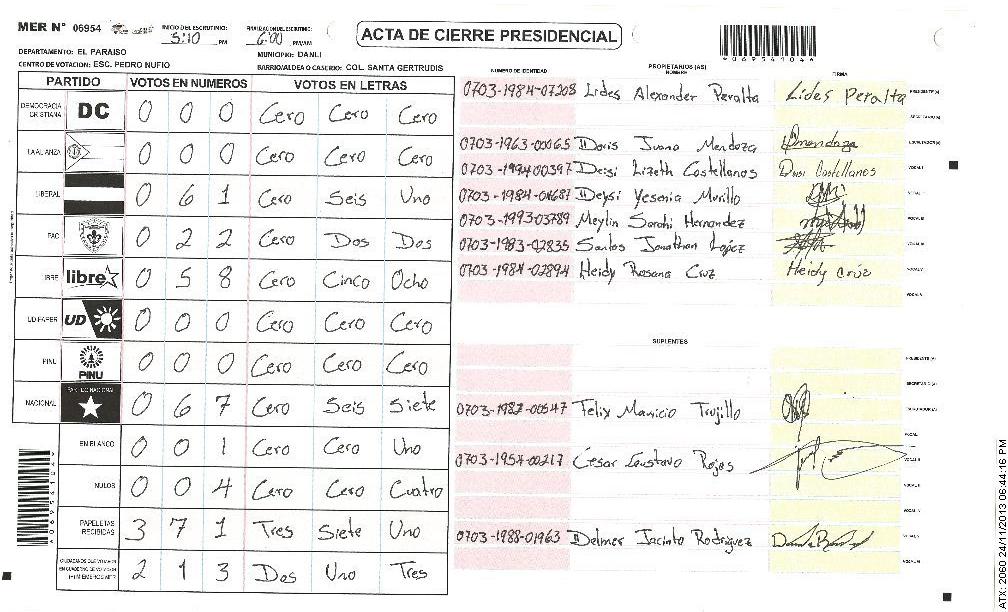 MER N° 06954
INICIO DEL ESCRUTINIO: 5:10 PM
FINALIZACION DEL ESCRUTINIO: 6:00 PM/AM
ACTA DE CIERRE PRESIDENCIAL
*06954104*
DEPARTAMENTO: EL PARAISO
MUNICIPIO: DANLI
CENTRO DE VOTACION: ESC. PEDRO NUFIO
BARRIO/ALDEA O CASERIO: COL. SANTA GERTRUDIS
PARTIDO VOTOS EN NUMEROS VOTOS EN LETRAS
DEMOCRACIA CRISTIANA DC 0 0 0 Cero Cero Cero
LA ALIANZA 0 0 0 Cero Cero Cero
LIBERAL 0 6 1 Cero Seis Uno
PAC 0 2 2 Cero Dos Dos
LIBRE libre 0 5 8 Cero Cinco Ocho
UD FAPER UD 0 0 0 Cero Cero Cero
PINU PINU 0 0 0 Cero Cero Cero
NACIONAL PARTIDO NACIONAL 0 6 7 Cero Seis Siete
EN BLANCO 0 0 1 Cero Cero Uno
NULOS 0 0 4 Cero Cero Cuatro
PAPELETAS RECIBIDAS 3 7 1 Tres Siete Uno
2 1 3 Dos Uno Tres
NUMERO DE IDENTIDAD PROPIETARIOS (AS) NOMBRE FIRMA
0703-1984-07208 Lides Alexander Peralta Lides Peralta PRESIDENTE (A)
SECRETARIO (A)
0703-1963-00065 Doris Juana Mendoza ESCRUTADOR (A)
0703-1994-00397 Deisi Lizeth Castellanos Deisi Castellanos VOCAL I
0703-1984-01687 Deysi Yesenia Murillo
0703-1993-03789 Meylin Sarahi Hernandez
0703-1983-02835 Santos Jonathan López
0703-1984-02894 Heidy Rosana Cruz Heidy Cruz VOCAL V
SUPLENTES
PRESIDENTE (A)
SECRETARIO (A)
0703-1987-00547 Felix Mauricio Trujillo ESCRUTADOR (A)
VOCAL
0703-1957-00217 Cesar Gustavo Rojas
0703-1988-01963 Delmer Jacinto Rodriguez
ATX: 2060 24/11/2013 06:44:16 PM